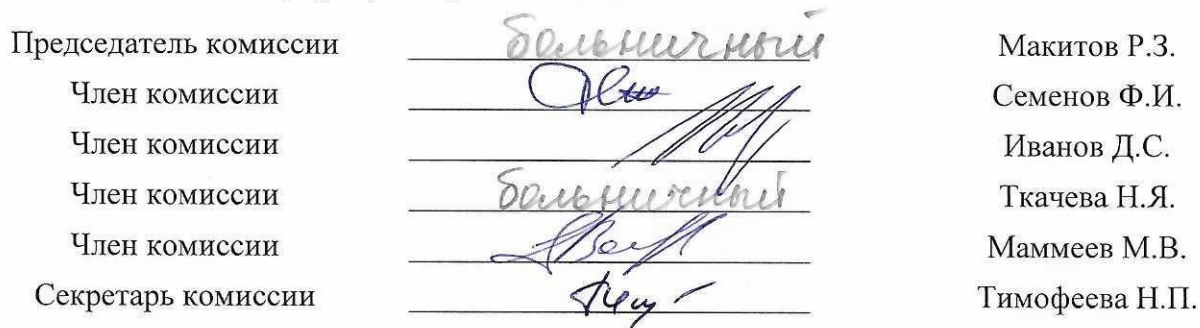 Председатель комиссии больничный Макитов Р.З.
Член комиссии Семенов Ф.И.
Член комиссии Иванов Д.С.
Член комиссии больничный Ткачева Н.Я.
Член комиссии Маммеев М.В.
Секретарь комиссии Тимофеева Н.П.